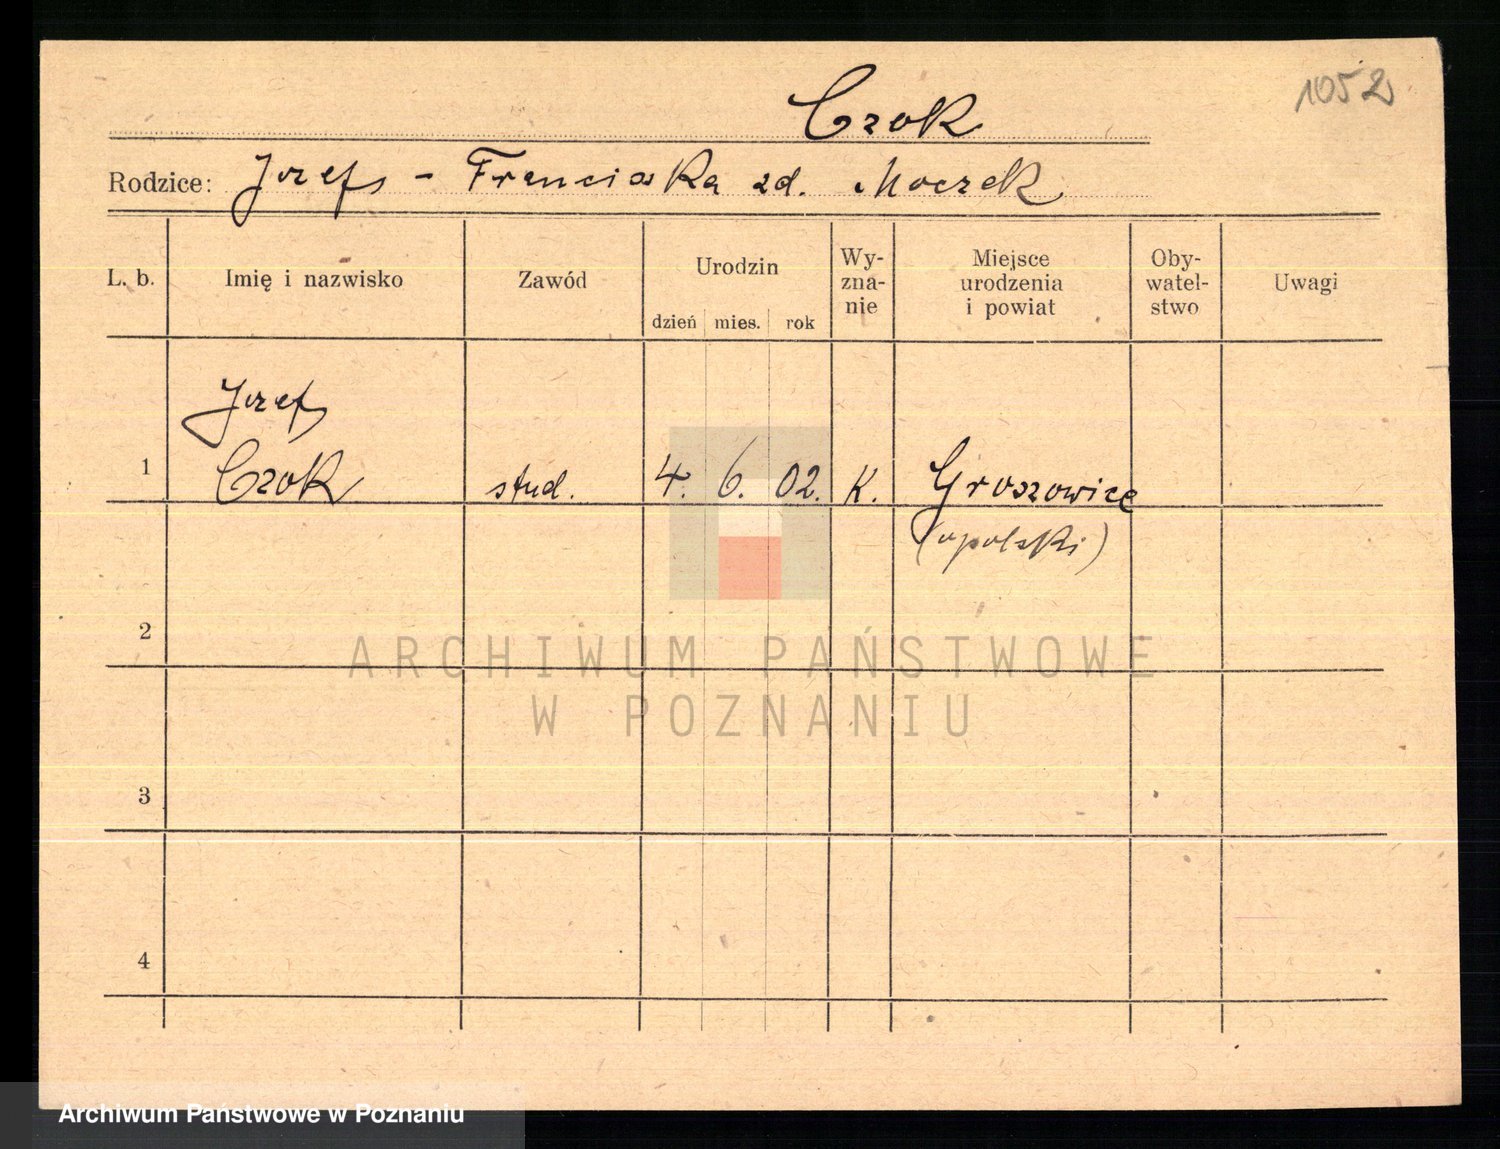 1052
Czok
Rodzice: Jozef - Franciszka zd. Moczek
L. b. Imię i nazwisko Zawód Urodzin Wy-zna-nie Miejsce urodzenia i powiat Oby-watel-stwo Uwagi
dzień mies. rok
Jozef
1 Czok stud. 4. 6. 02. K. Groszowice
(opolski)
2
ARCHIWUM PAŃSTWOWE
W POZNANIU
3
4
Archiwum Państwowe w Poznaniu